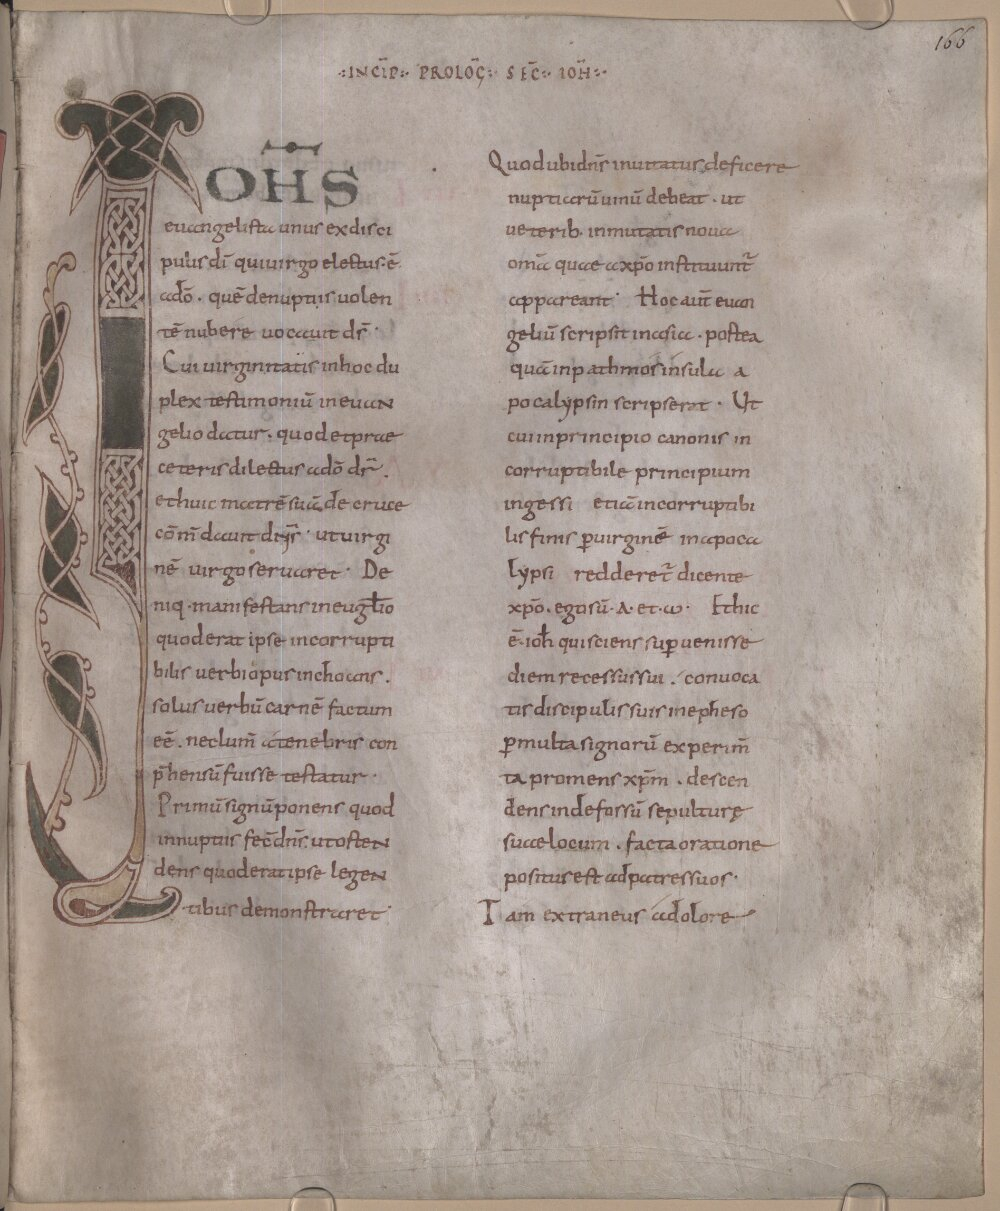 166
·:INCĪP:· PROLOḠ:· SEC̄:· IOH̄:·
IOHS̄
euangelista unus ex disci
pulis dī qui uirgo electus·ē·
a dō· quē de nuptiis uolen
tē nubere uocauit dr̄·
Cui uirginitatis in hoc du
plex testimoniū in euan
gelio datur· quod et prae
ceteris dilectus a dō dr̄·
et huic matrē suā de cruce
cōm̄dauit dn̄s· ut uirgi
nē uirgo seruaret· De
niq· manifestans in eugl̄io
quod erat ipse incorrupti
bilis uerbi opus inchoans·
solus uerbū carnē factum
eē· nec lum̄ a tenebris con
p̄hensū fuisse testatur·
Primū signū ponens quod
in nuptiis fec̄ dn̄s· ut osten
dens quod erat ipse legen
tibus demonstraret·
Quod ubi dn̄s inuitatus deficere
nuptiarū uinū debeat· ut
ueterib· inmutatis noua
omā quae a xp̄o instituunt̄
appareant· Hoc aut̄ euan
geliū scripsit in asia· postea
quā in pathmos insula a
pocalypsin scripserat· Ut
cui in principio canonis in
corruptibile principium
in gessi etiā incorruptibi
lis finis p̄ uirginē in apoca
lypsi redderet̄ dicente
xp̄o· ego sū·A· et·ω· Et hic
ē· ioh̄ qui sciens sup̄uenisse
diem recessus sui· conuoca
tis discipulis suis in epheso
p̄ multa signorū experim̄
ta promens xp̄m· descen
dens in defossū sepulturę
suae locum· facta oratione
positus est ad patres suos·
Tam extraneus a dolore